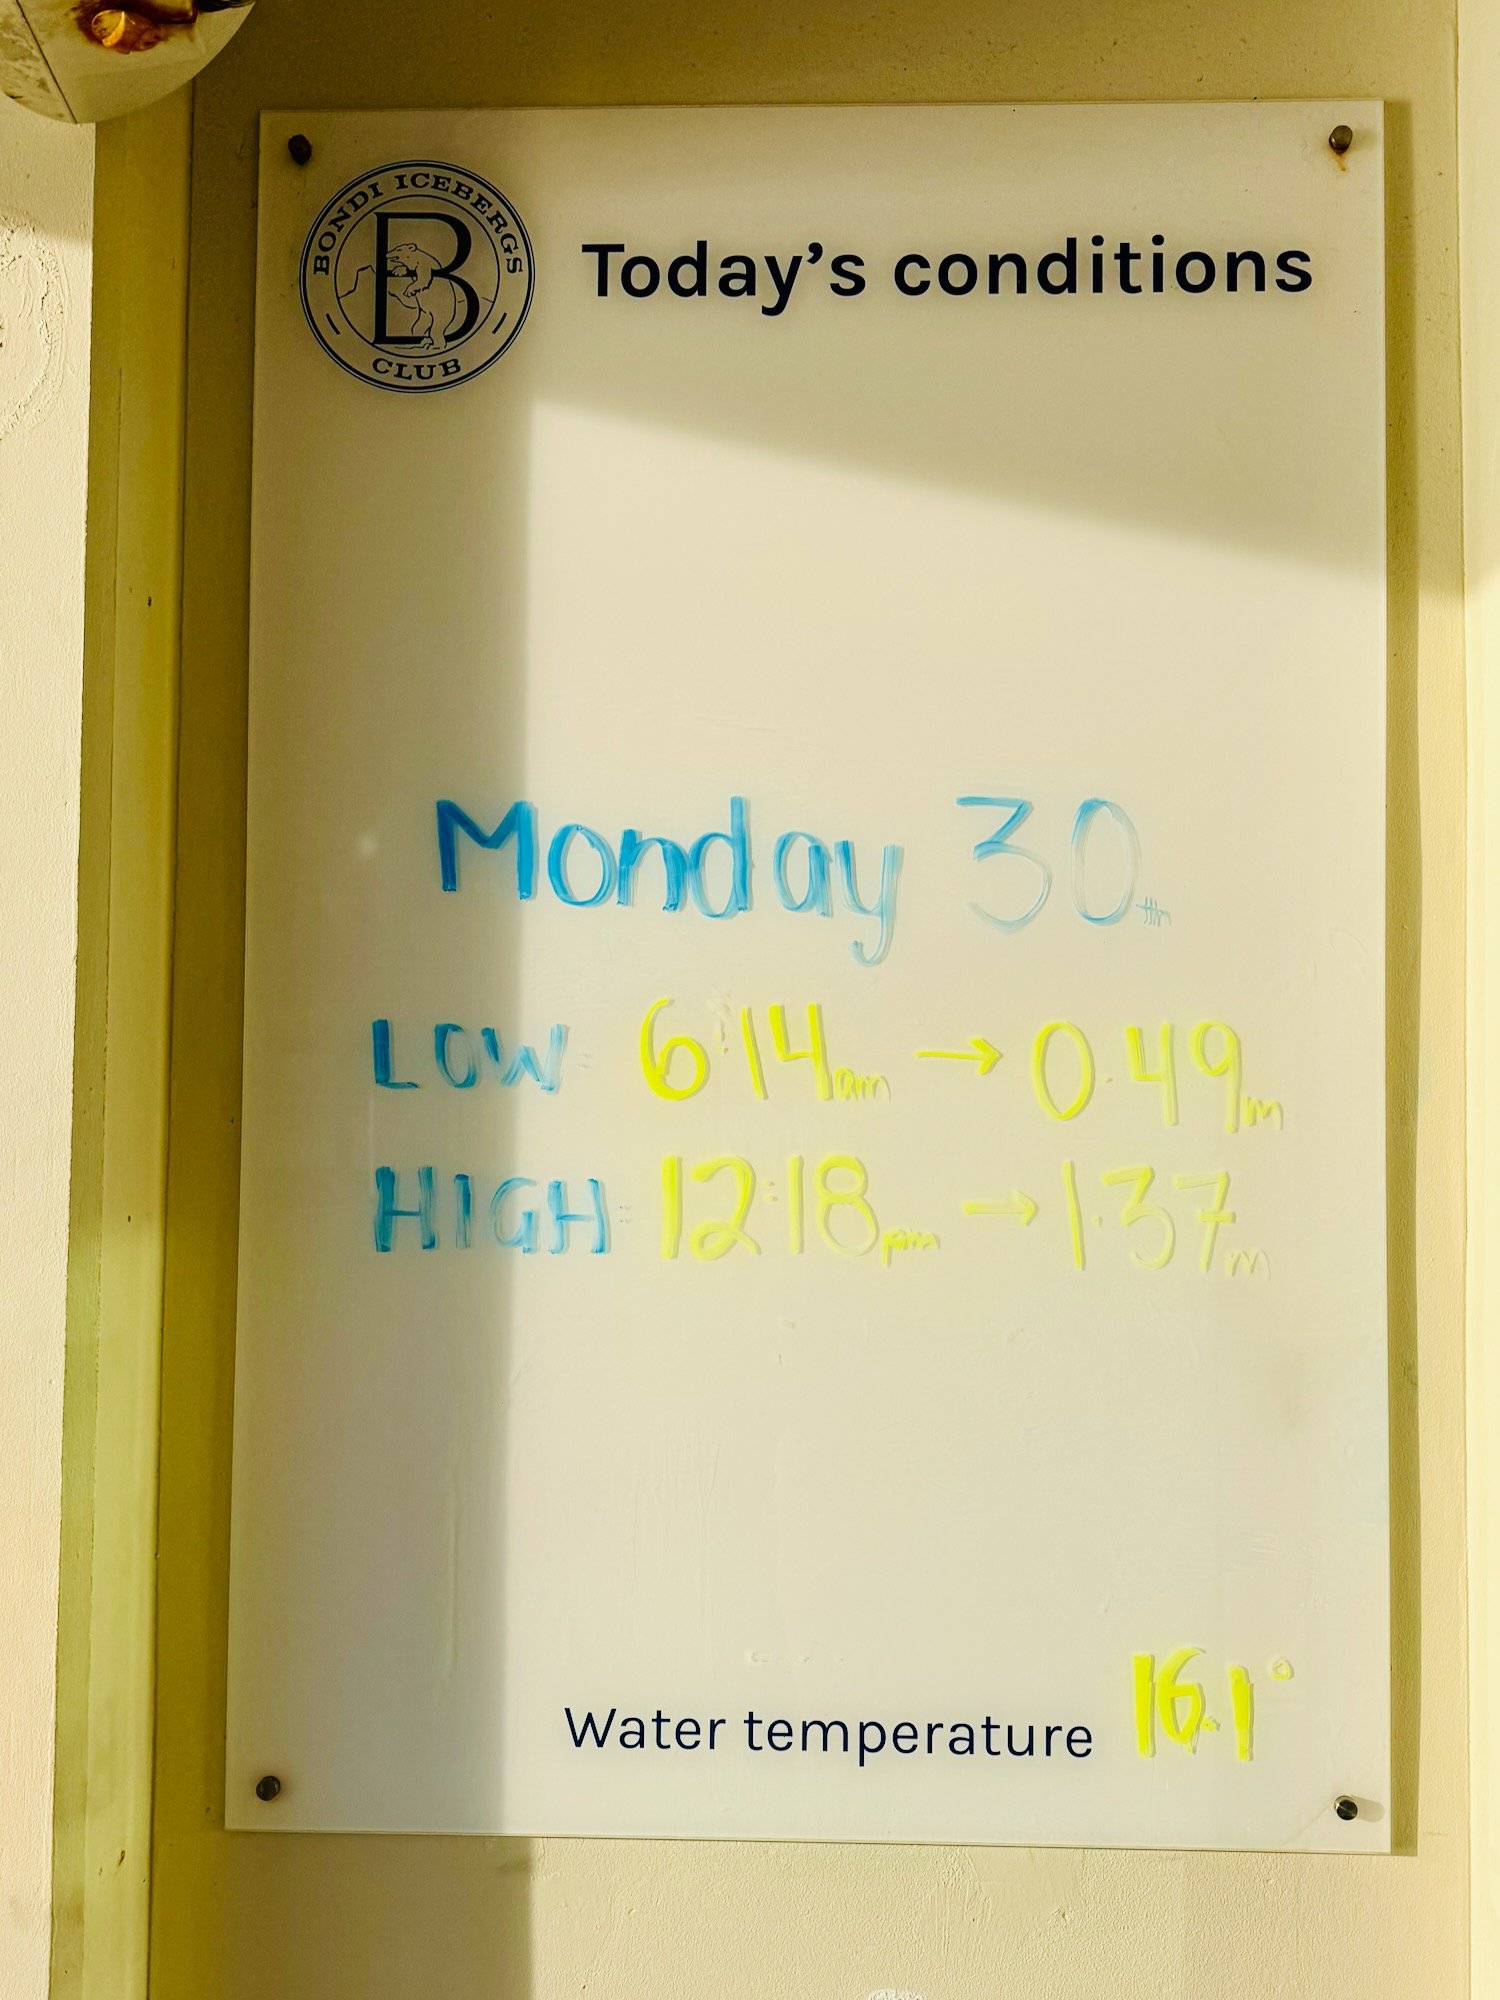 BONDI ICEBERGS
CLUB
B
Today's conditions
Monday 30th
LOW: 6:14am → 0.49m
HIGH: 12:18pm → 1.37m
Water temperature 16.1°